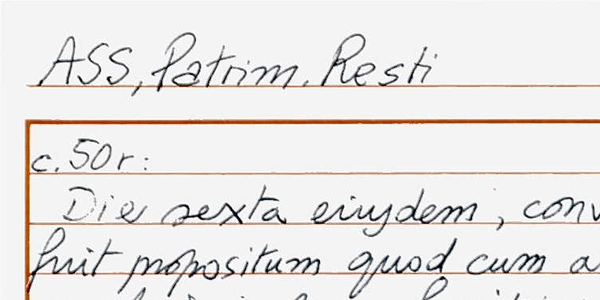 ASS, Patrim. Resti
c. 50r:
Die sexta eiusdem, conv
fuit propositum quod cum a